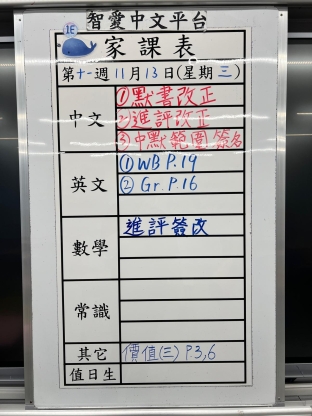 智愛中文平台
1E
家課表
第十一週 11月13日(星期三)
中文
①默書改正
②進評改正
③中默範圍簽名
英文
①WB P.19
②Gr.P.16
數學
進評簽改
常識
其它
價值(三) P.3,6
值日生